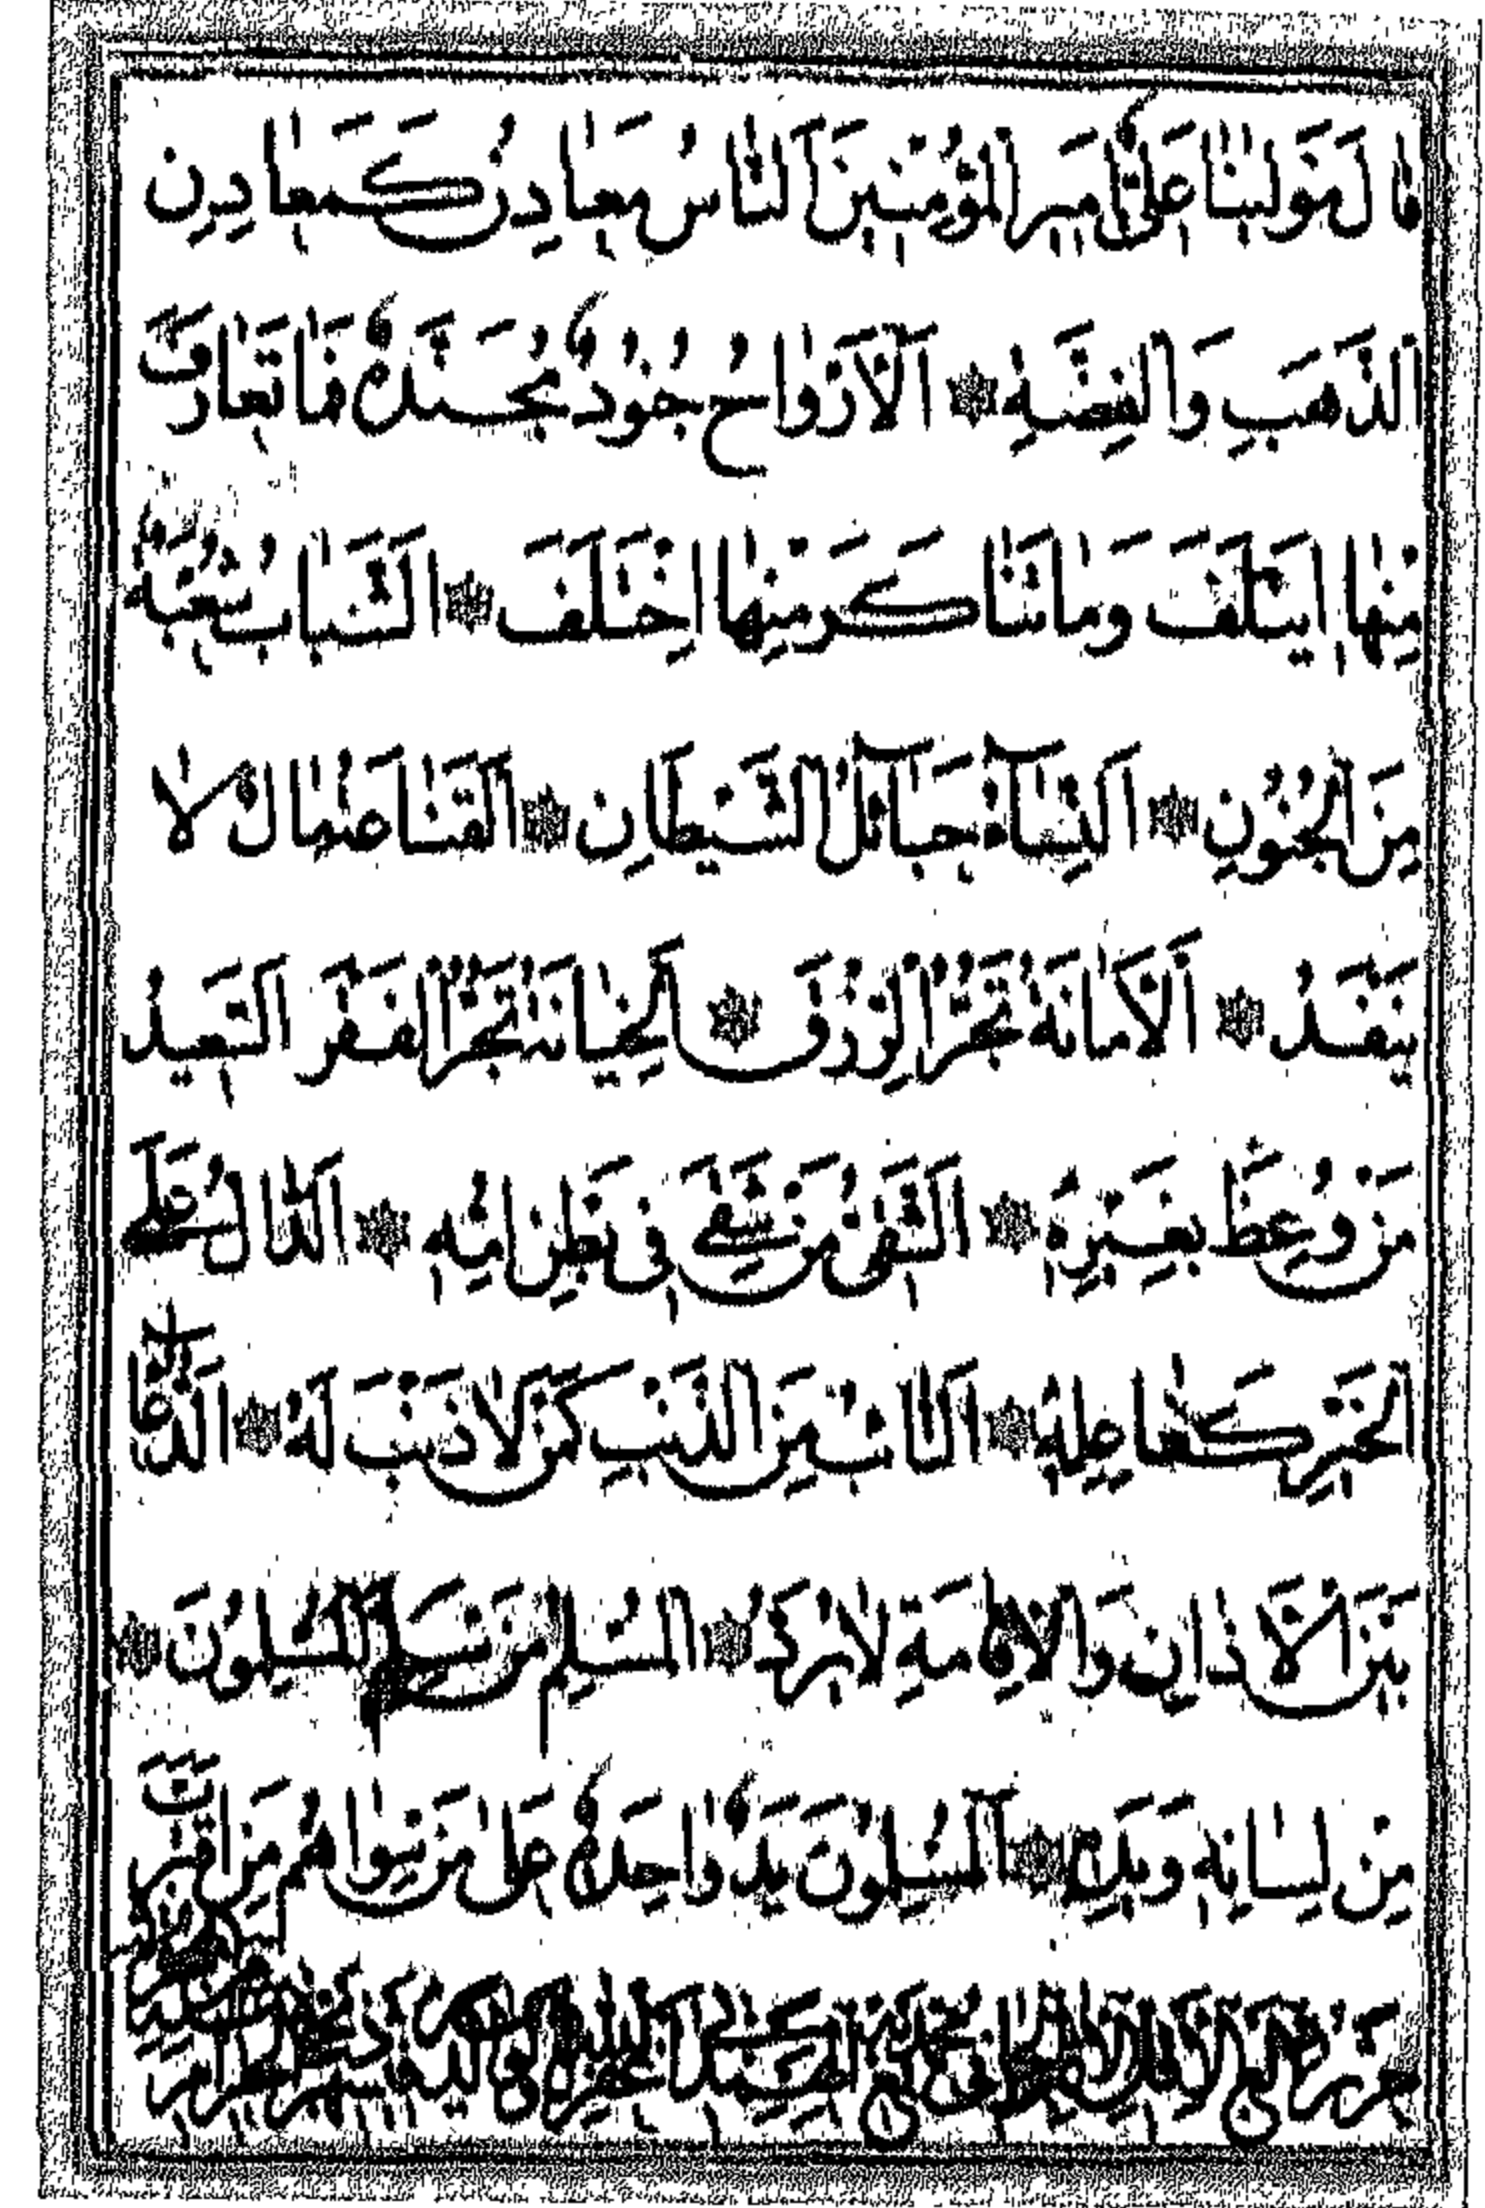 قَالَ مَوْلٰينَا عَلِىٌّ اَمِيرُ الْمُؤْمِنِينَ اَلنَّاسُ مَعَادِنُ كَمَعَادِنِ
الذَّهَبِ وَالْفِضَّةِ اَلْاَرْوَاحُ جُنُودٌ مُجَنَّدَةٌ فَمَا تَعَارَفَ
مِنْهَا ايتَلَفَ وَمَا تَنَاكَرَ مِنْهَا اخْتَلَفَ اَلشَّبَابُ شُعْبَةٌ
مِنَ الْجُنُونِ اَلنِّسَآءُ حَبَآئِلُ الشَّيْطَانِ اَلْقَنَاعَةُ مَالٌ لَا
يَنْفَدُ اَلْاَمَانَةُ تَجُرُّ الرِّزْقَ اَلْخِيَانَةُ تَجُرُّ الْفَقْرَ اَلسَّعِيدُ
مَنْ وُعِظَ بِغَيْرِهِ اَلشَّقِىُّ مَنْ شَقِىَ فِى بَطْنِ اُمِّهِ اَلدَّالُّ عَلَى
الْخَيْرِ كَفَاعِلِهِ اَلتَّائِبُ مِنَ الذَّنْبِ كَمَنْ لَا ذَنْبَ لَهُ اَلدُّعَآءُ
بَيْنَ الْاَذَانِ وَالْاِقَامَةِ لَا يُرَدُّ اَلْمُسْلِمُ مَنْ سَلِمَ الْمُسْلِمُونَ
مِنْ لِسَانِهِ وَيَدِهِ اَلْمُسْلِمُونَ يَدٌ وَاحِدَةٌ عَلٰى مَنْ سِوَاهُمْ مَنِ اقْتَرَبَ